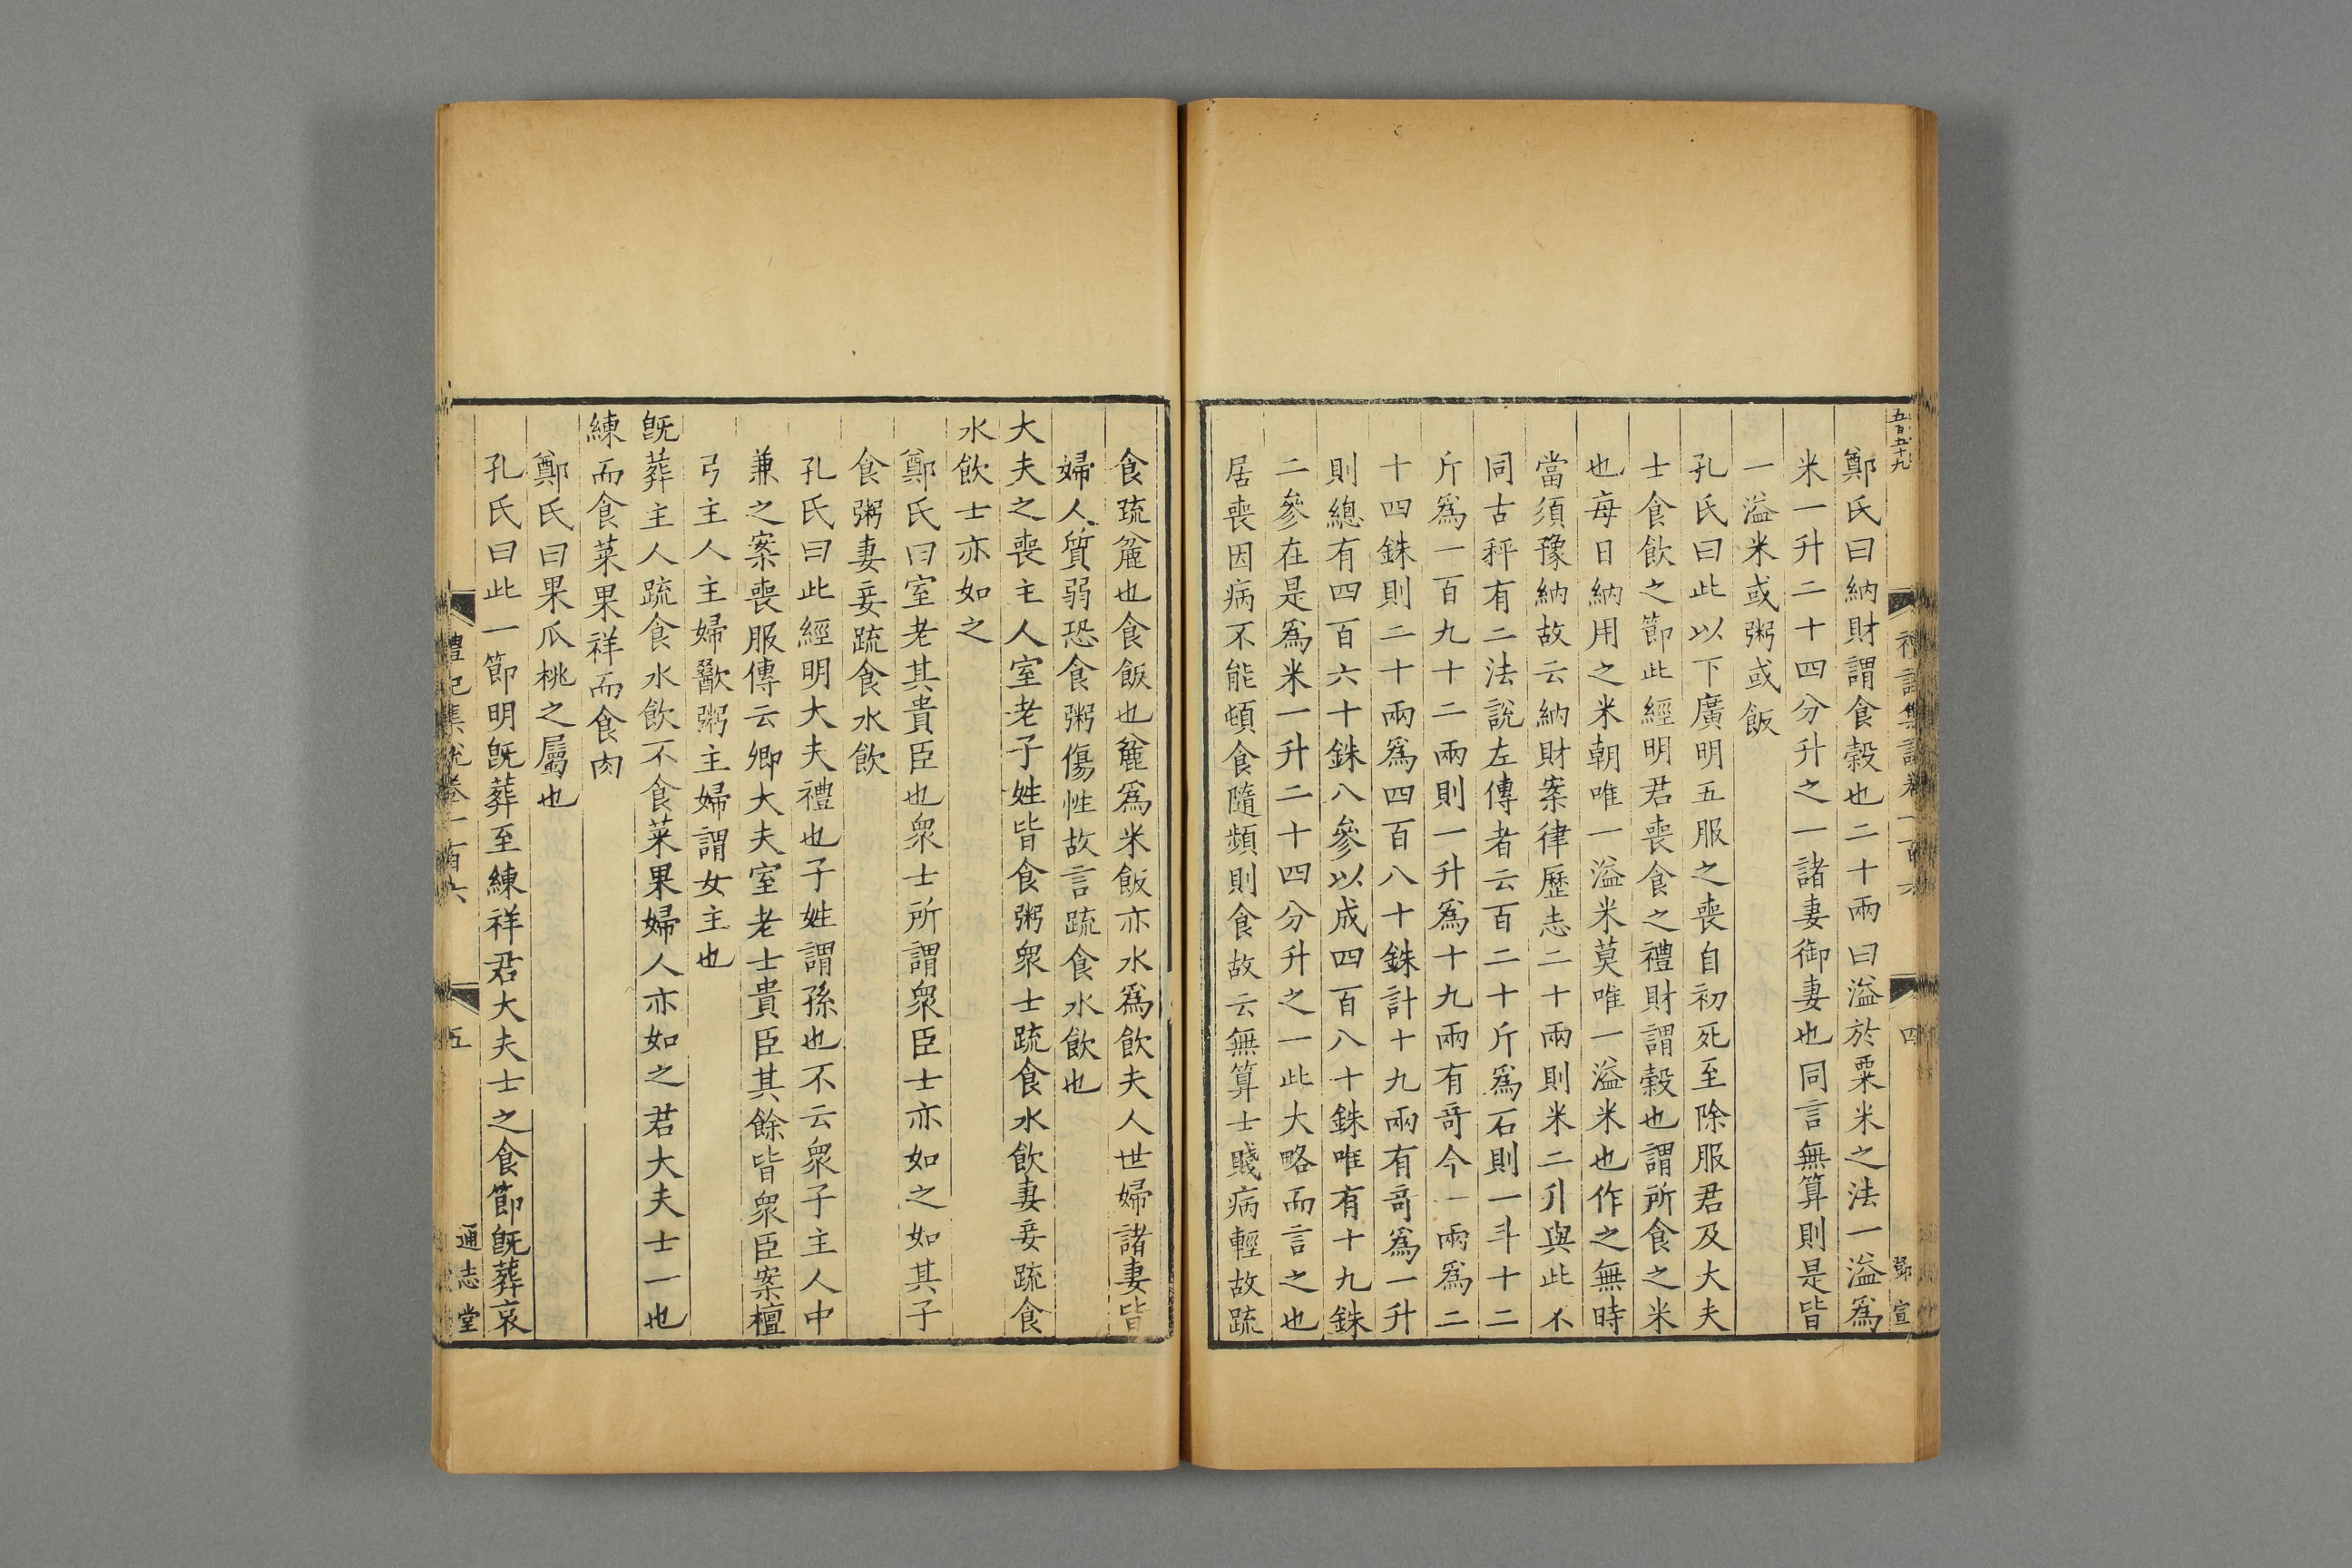 五百五十九
禮記集說卷一百六
四
鄧宣
鄭氏曰納財謂食穀也二十兩曰溢於粟米之法一溢爲
米一升二十四分升之一諸妻御妻也同言無算則是皆
一溢米或粥或飯
孔氏曰此以下廣明五服之喪自初死至除服君及大夫
士食飲之節此經明君喪食之禮財謂穀也謂所食之米
也每日納用之米朝唯一溢米莫唯一溢米也作之無時
當須豫納故云納財案律歷志二十兩則米二升與此不
同古秤有二法說左傳者云百二十斤爲石則一斗十二
斤爲一百九十二兩則一升爲十九兩有奇今一兩爲二
十四銖則二十兩爲四百八十銖計十九兩有奇爲一升
則總有四百六十銖八參以成四百八十銖唯有十九銖
二參在是爲米一升二十四分升之一此大略而言之也
居喪因病不能頓食隨頻則食故云無算士賤病輕故疏
食疏麄也食飯也麄爲米飯亦水爲飲夫人世婦諸妻皆
婦人質弱恐食粥傷性故言疏食水飲也
大夫之喪主人室老子姓皆食粥衆士疏食水飲妻妾疏食
水飲士亦如之
鄭氏曰室老其貴臣也衆士所謂衆臣士亦如之如其子
食粥妻妾疏食水飲
孔氏曰此經明大夫禮也子姓謂孫也不云衆子主人中
兼之案喪服傳云卿大夫室老士貴臣其餘皆衆臣案檀
弓主人主婦歠粥主婦謂女主也
旣葬主人疏食水飲不食菜果婦人亦如之君大夫士一也
練而食菜果祥而食肉
鄭氏曰果瓜桃之屬也
孔氏曰此一節明旣葬至練祥君大夫士之食節旣葬哀
禮記集說卷一百六
五
通志堂